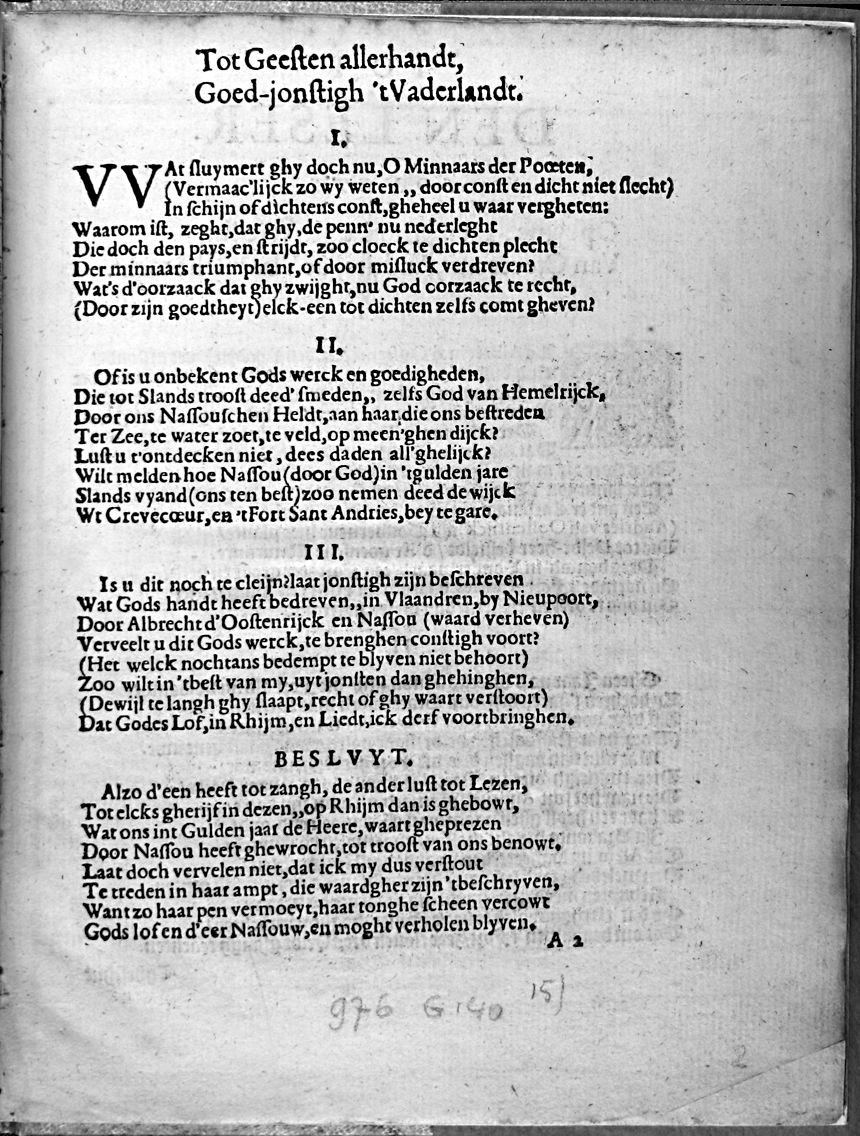 Tot Geeſten allerhandt,
Goed-jonſtigh 'tVaderlandt.
I.
VVAt ſluymert ghy doch nu, O Minnaars der Poœten,
(Vermaac'lijck zo wy weten ,, door conſt en dicht niet ſlecht)
In ſchijn of dichtens conſt, gheheel u waar vergheten:
Waarom iſt, zeght, dat ghy, de penn' nu nederleght
Die doch den pays, en ſtrijdt, zoo cloeck te dichten plecht
Der minnaars triumphant, of door miſluck verdreven?
Wat's d'oorzaack dat ghy zwijght, nu God oorzaack te recht,
(Door zijn goedtheyt) elck-een tot dichten zelfs comt gheven?
II.
Of is u onbekent Gods werck en goedigheden,
Die tot Slands trooſt deed' ſmeden,, zelfs God van Hemelrijck,
Door ons Naſſouſchen Heldt, aan haar, die ons beſtreden
Ter Zee, te water zoet, te veld, op meen'ghen dijck?
Luſt u t'ontdecken niet, dees daden all'ghelijck?
Wilt melden hoe Naſſou (door God) in 'tgulden jare
Slands vyand (ons ten beſt) zoo nemen deed de wijck
Wt Crevecœur, en 'tFort Sant Andries, bey te gare.
III.
Is u dit noch te cleijn? laat jonſtigh zijn beſchreven
Wat Gods handt heeft bedreven,, in Vlaandren, by Nieupoort,
Door Albrecht d'Ooſtenrijck en Naſſou (waard verheven)
Verveelt u dit Gods werck, te brenghen conſtigh voort?
(Het welck nochtans bedempt te blyven niet behoort)
Zoo wilt in 'tbeſt van my, uyt jonſten dan ghehinghen,
(Dewijl te langh ghy ſlaapt, recht of ghy waart verſtoort)
Dat Godes Lof, in Rhijm, en Liedt, ick derf voortbringhen.
BESLVYT.
Alzo d'een heeft tot zangh, de ander luſt tot Lezen,
Tot elcks gherijf in dezen,, op Rhijm dan is ghebowt,
Wat ons int Gulden jaar de Heere, waart gheprezen
Door Naſſou heeft ghewrocht, tot trooſt van ons benowt.
Laat doch vervelen niet, dat ick my dus verſtout
Te treden in haar ampt, die waardgher zijn 'tbeſchryven,
Want zo haar pen vermoeyt, haar tonghe ſcheen vercowt
Gods lof en d'eer Naſſouw, en moght verholen blyven.
A 2
976 G 140 15)
2